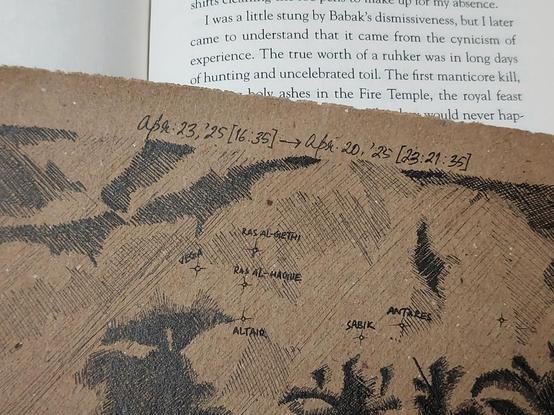 shifts cleaning the pens to make up for my absence.
I was a little stung by Babak's dismissiveness, but I later
came to understand that it came from the cynicism of
experience. The true worth of a ruhker was in long days
of hunting and uncelebrated toil. The first manticore kill,
holy ashes in the Fire Temple, the royal feast
would never hap-
Apr. 23, '25 [16:35] → Apr. 20, '25 [23:21:35]
RAS AL-GETHI
VEGA
RAS AL-HAGUE
ALTAIR
SABIK
ANTARES